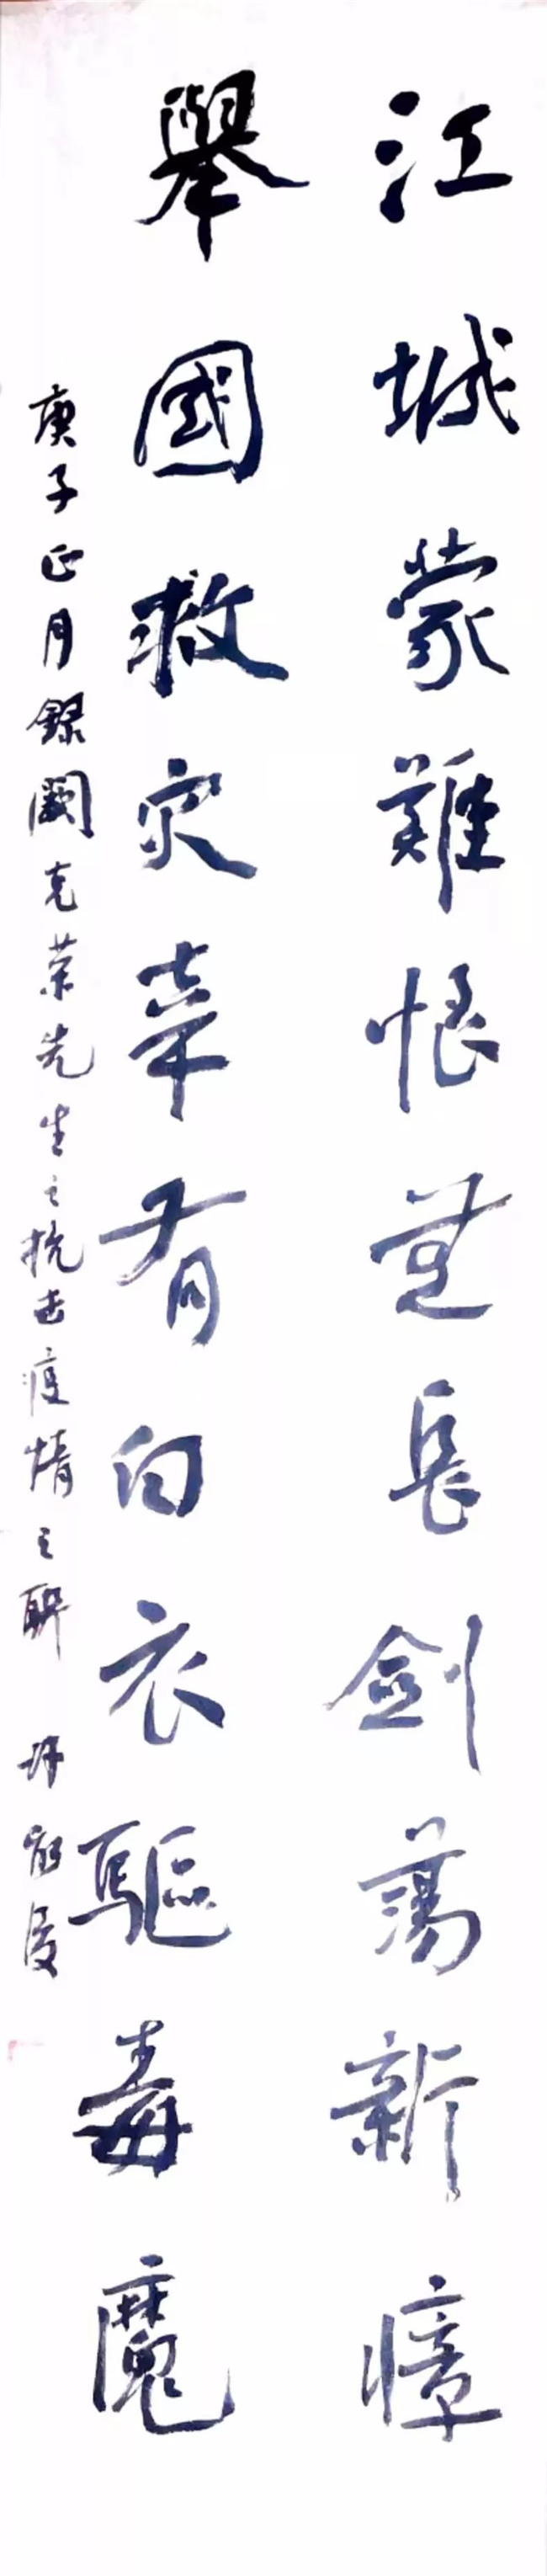 江城蒙難恨無長劍蕩新瘴
舉國救灾幸有白衣驅毒魔
庚子正月録闞克荣先生之抗击疫情之联